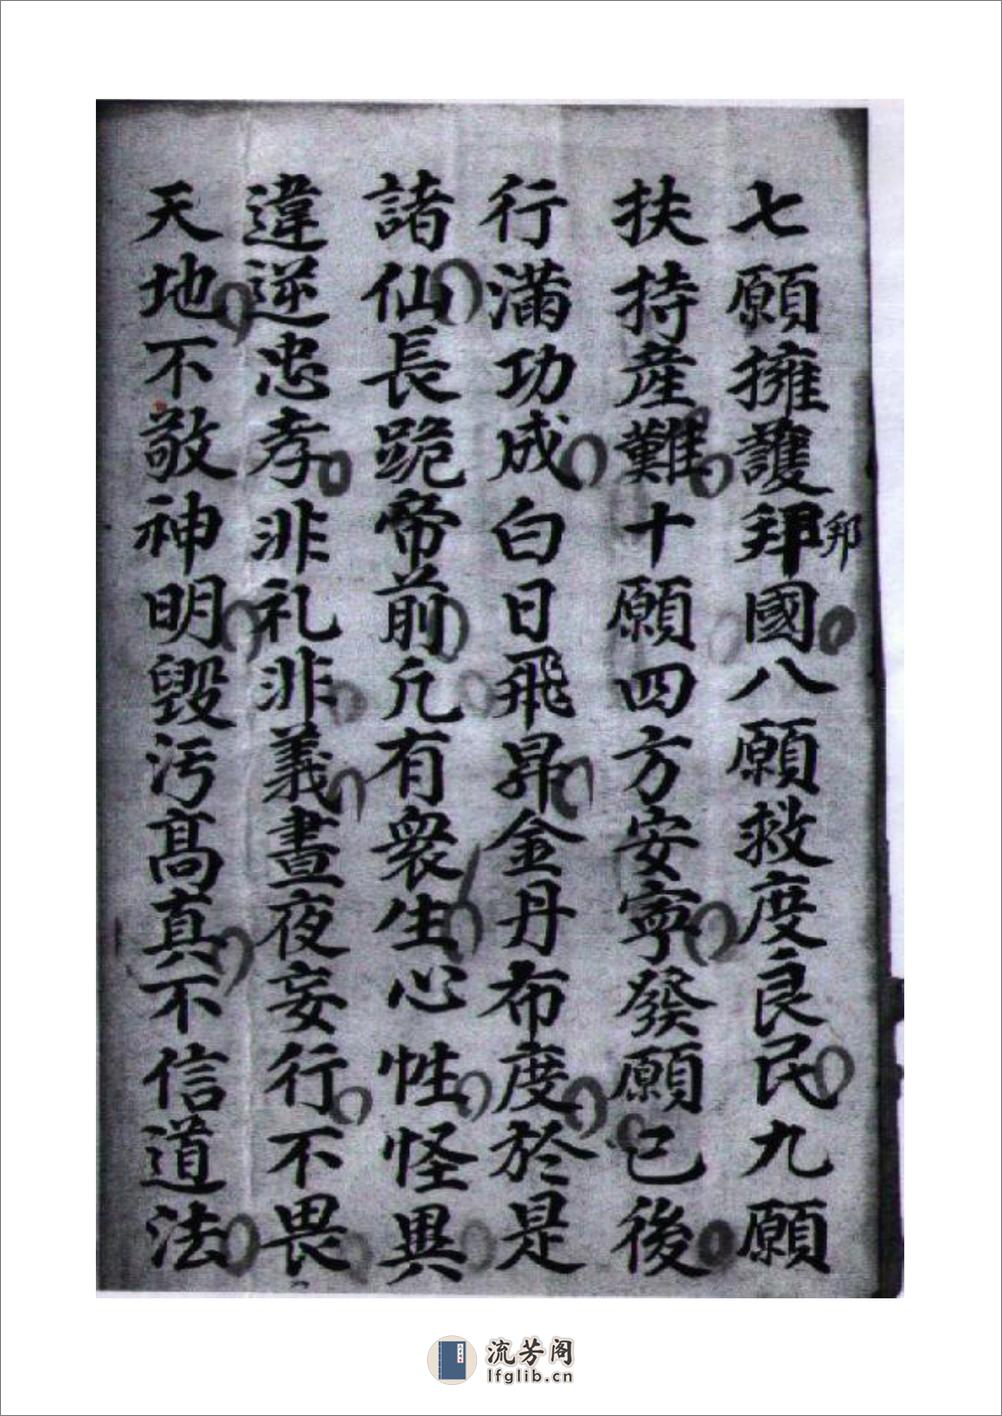 七願擁護邦國八願救度良民九願
扶持產難十願四方安寧發願已後
行滿功成白日飛昇金丹布度於是
諸仙長跪帝前凢有衆生心性怪異
違逆忠孝非礼非義晝夜妄行不畏
天地不敬神明毀污髙真不信道法
流芳阁
lfglib.cn